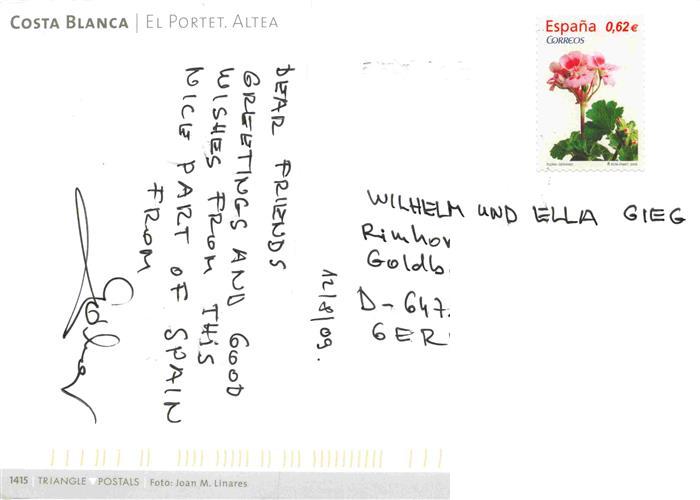 COSTA BLANCA | EL PORTET. ALTEA
España 0,62€
CORREOS
12/8/09.
DEAR FRIENDS
GREETINGS AND GOOD
WISHES FROM THIS
NICE PART OF SPAIN
FROM
WILHELM UND ELLA GIEG
Rimhor
Goldb.
D-647
GER
1415 | TRIANGLE ▼ POSTALS | Foto: Joan M. Linares